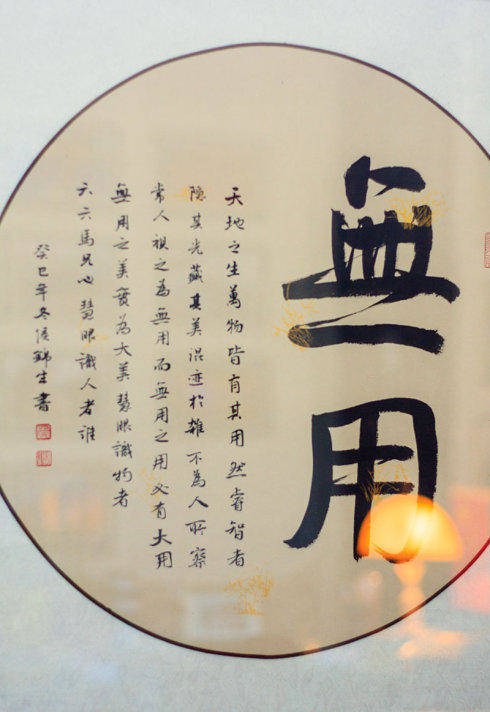 無用
天地之生萬物皆有其用然睿智者
隐其光藏其美混迹於雜不為人所察
常人視之為無用而無用之用必有大用
無用之美實為大美慧眼識物者
心慧眼識人者誰
癸巳年冬侯錦生書